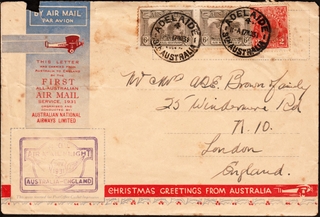 BY AIR MAIL
PAR AVION
THIS LETTER
WAS CARRIED FROM
AUSTRALIA TO ENGLAND
BY THE
FIRST
ALL-AUSTRALIAN
AIR MAIL
SERVICE, 1931
AUSTRALIAN NATIONAL
AIRWAYS LIMITED
ADELAIDE
STH AUSTRALIA
ADELAIDE
STH AUSTRALIA
Mr & Mrs
Brown & family
25 Windermere Rd
N. 10.
London
England.
AUSTRALIA-ENGLAND
CHRISTMAS GREETINGS FROM AUSTRALIA